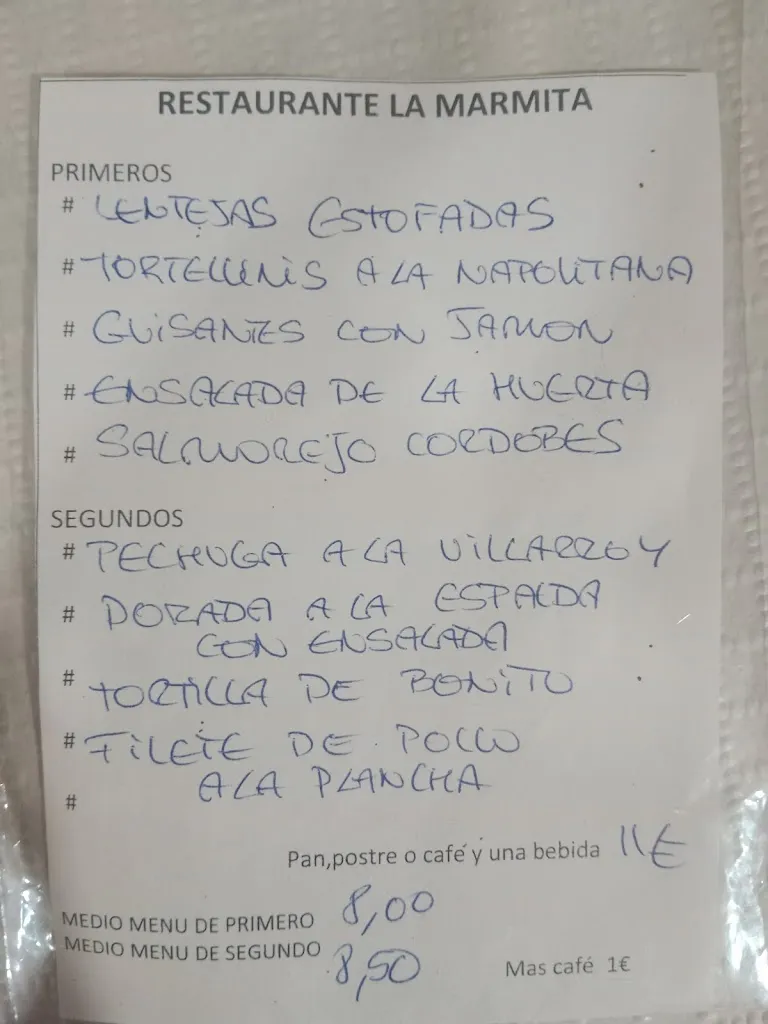 RESTAURANTE LA MARMITA
PRIMEROS
# LENTEJAS ESTOFADAS
# TORTELLINIS A LA NAPOLITANA
# GUISANTES CON JAMON
# ENSALADA DE LA HUERTA
# SALMOREJO CORDOBES
SEGUNDOS
# PECHUGA A LA VILLARROY
# DORADA A LA ESPALDA
CON ENSALADA
# TORTILLA DE BONITO
# FILETE DE POLLO
A LA PLANCHA
#
Pan,postre o café y una bebida 11€
MEDIO MENU DE PRIMERO 8,00
MEDIO MENU DE SEGUNDO 8,50
Mas café 1€